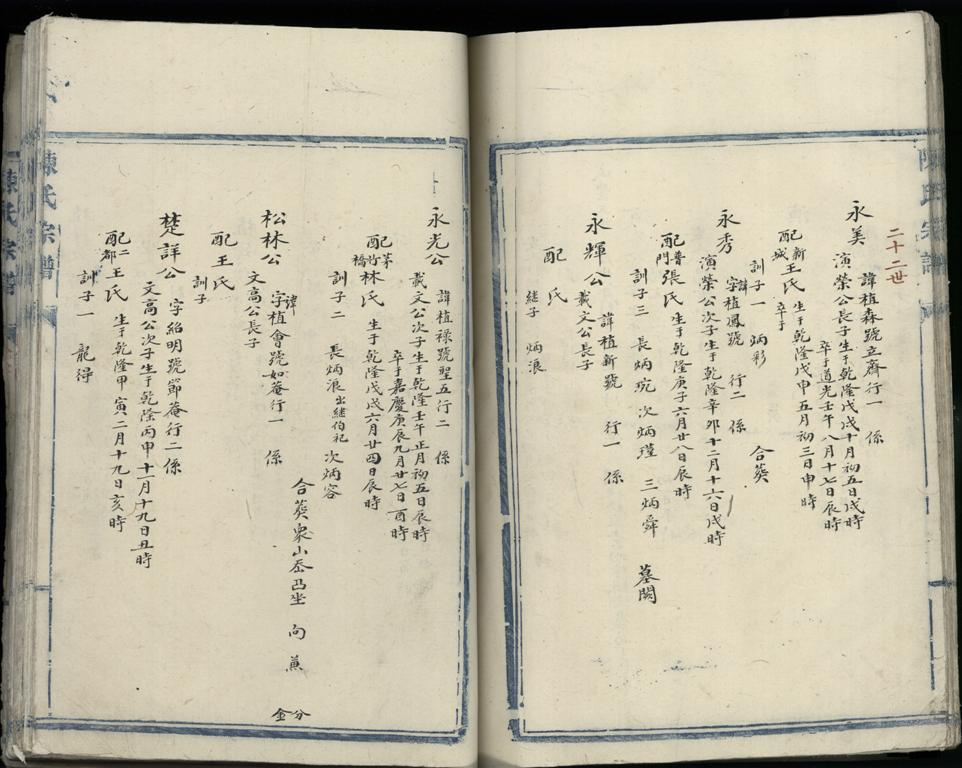 二十二世
永美
諱植森號立齋行一 係
演榮公長子生于乾隆戊戌十月初五日戌時
卒于道光壬午八月十七日辰時
配新城王氏 生于乾隆戊申五月初三日申時
卒于
訓子一 炳彩 合葵
永秀
諱字植鳳號 行二 係
演榮公次子生于乾隆辛卯十二月十六日戌時
配普門張氏 生于乾隆庚子六月廿八日辰時
訓子三 長炳琓 次炳瑾 三炳舜 墓闕
永輝公
諱植新號 行一 係
載文公長子
配 氏
継子 炳浪
永光公
諱植祿號聖五行二 係
載文公次子生于乾隆壬午正月初五日辰時
卒于嘉慶庚辰九月廿七日酉時
配茅竹橋林氏 生于乾隆戊戌六月廿四日辰時
訓子二 長炳浪出継伯祀 次炳容
合葵眾山岙凸坐 向 兼 分金
松林公
諱字植會號如菴行一 係
文高公長子
配王氏
訓子
楚詳公
字紹明號節菴行二係
文高公次子生于乾隆丙申十一月十九日丑時
配二都王氏 生于乾隆甲寅二月十九日亥時
訓子一 龍得
陳氏宗譜
陳氏宗譜